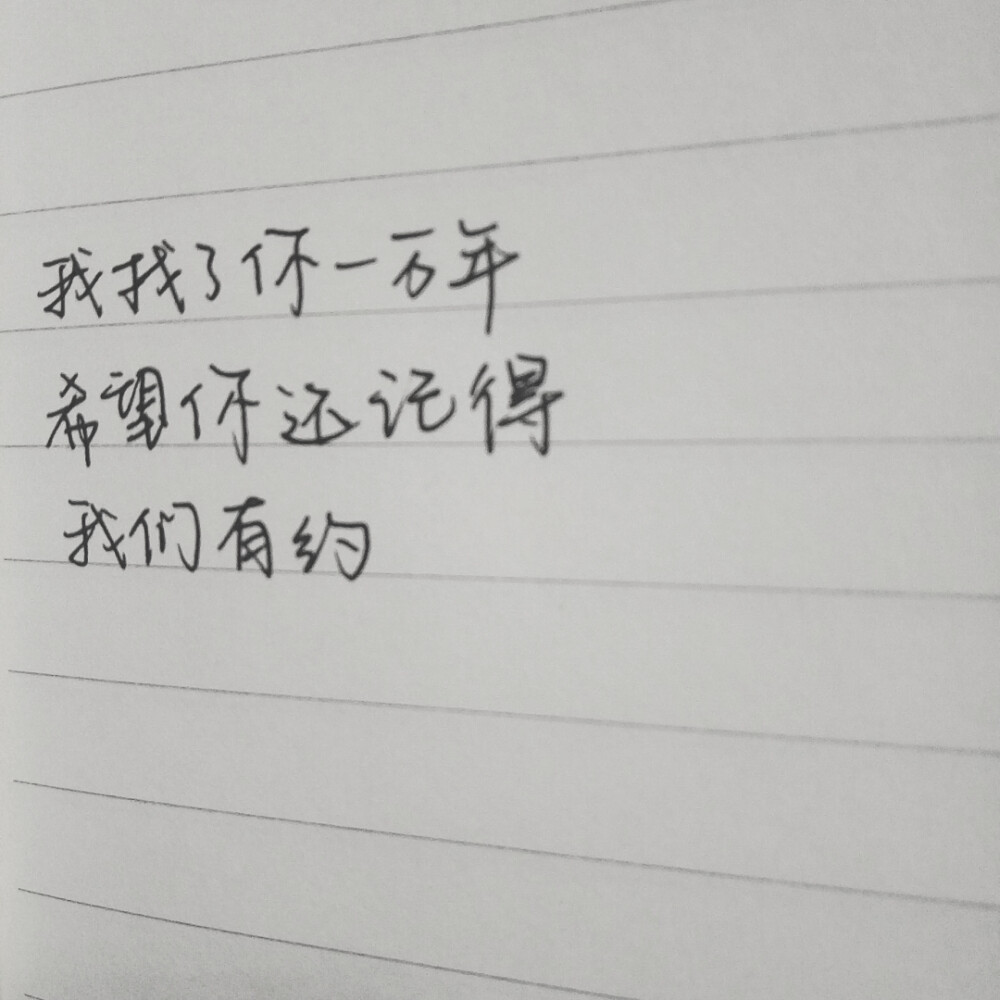 我找了你一万年
希望你还记得
我们有约